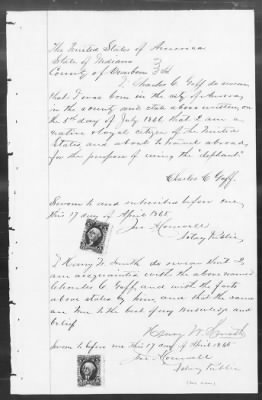 The United States of America
State of Indiana
County of Dearborn } SS
I, Charles C. Goff do swear
that I was born in the city of Aurora,
in the county and state above written, on
the 1st day of July 1841 that I am a
native & loyal citizen of the United
States and about to travel abroad,
for the purpose of
Charles C. Goff.
Sworn to and subscribed before me
this 17 day of April 1865
Notary Public
I Henry W. Smith do swear that I
am acquainted with the above named
Charles C. Goff, and with the facts
above stated by him, and that the same
are true to the best of my knowledge and
belief
Henry W. Smith
Sworn to before me this 17 day of April 1865
Notary Public